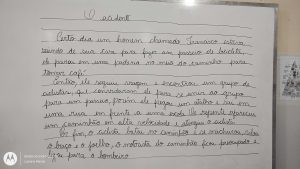 O acidente
Certo dia um homem chamado Francisco estava
saindo de sua casa para fazer um passeio de bicicleta,
ele parou em uma padaria no meio do caminho para
tomar café.
Então, ele seguiu viagem e encontrou um grupo de
ciclistas, que convidaram ele para se unir ao grupo
para um passeio, porém ele pegou um atalho e saiu em
uma rua em frente a uma escola. De repente apareceu
um caminhão em alta velocidade e atingiu o ciclista.
Por fim, o ciclista bateu no caminhão e se machucou,
o braço e o joelho, o motorista do caminhão ficou preocupado e
ligou para o bombeiro.